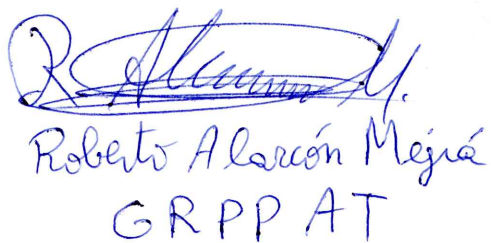 R. Alarcón M.
Roberto Alarcón Mejía
GRPP AT